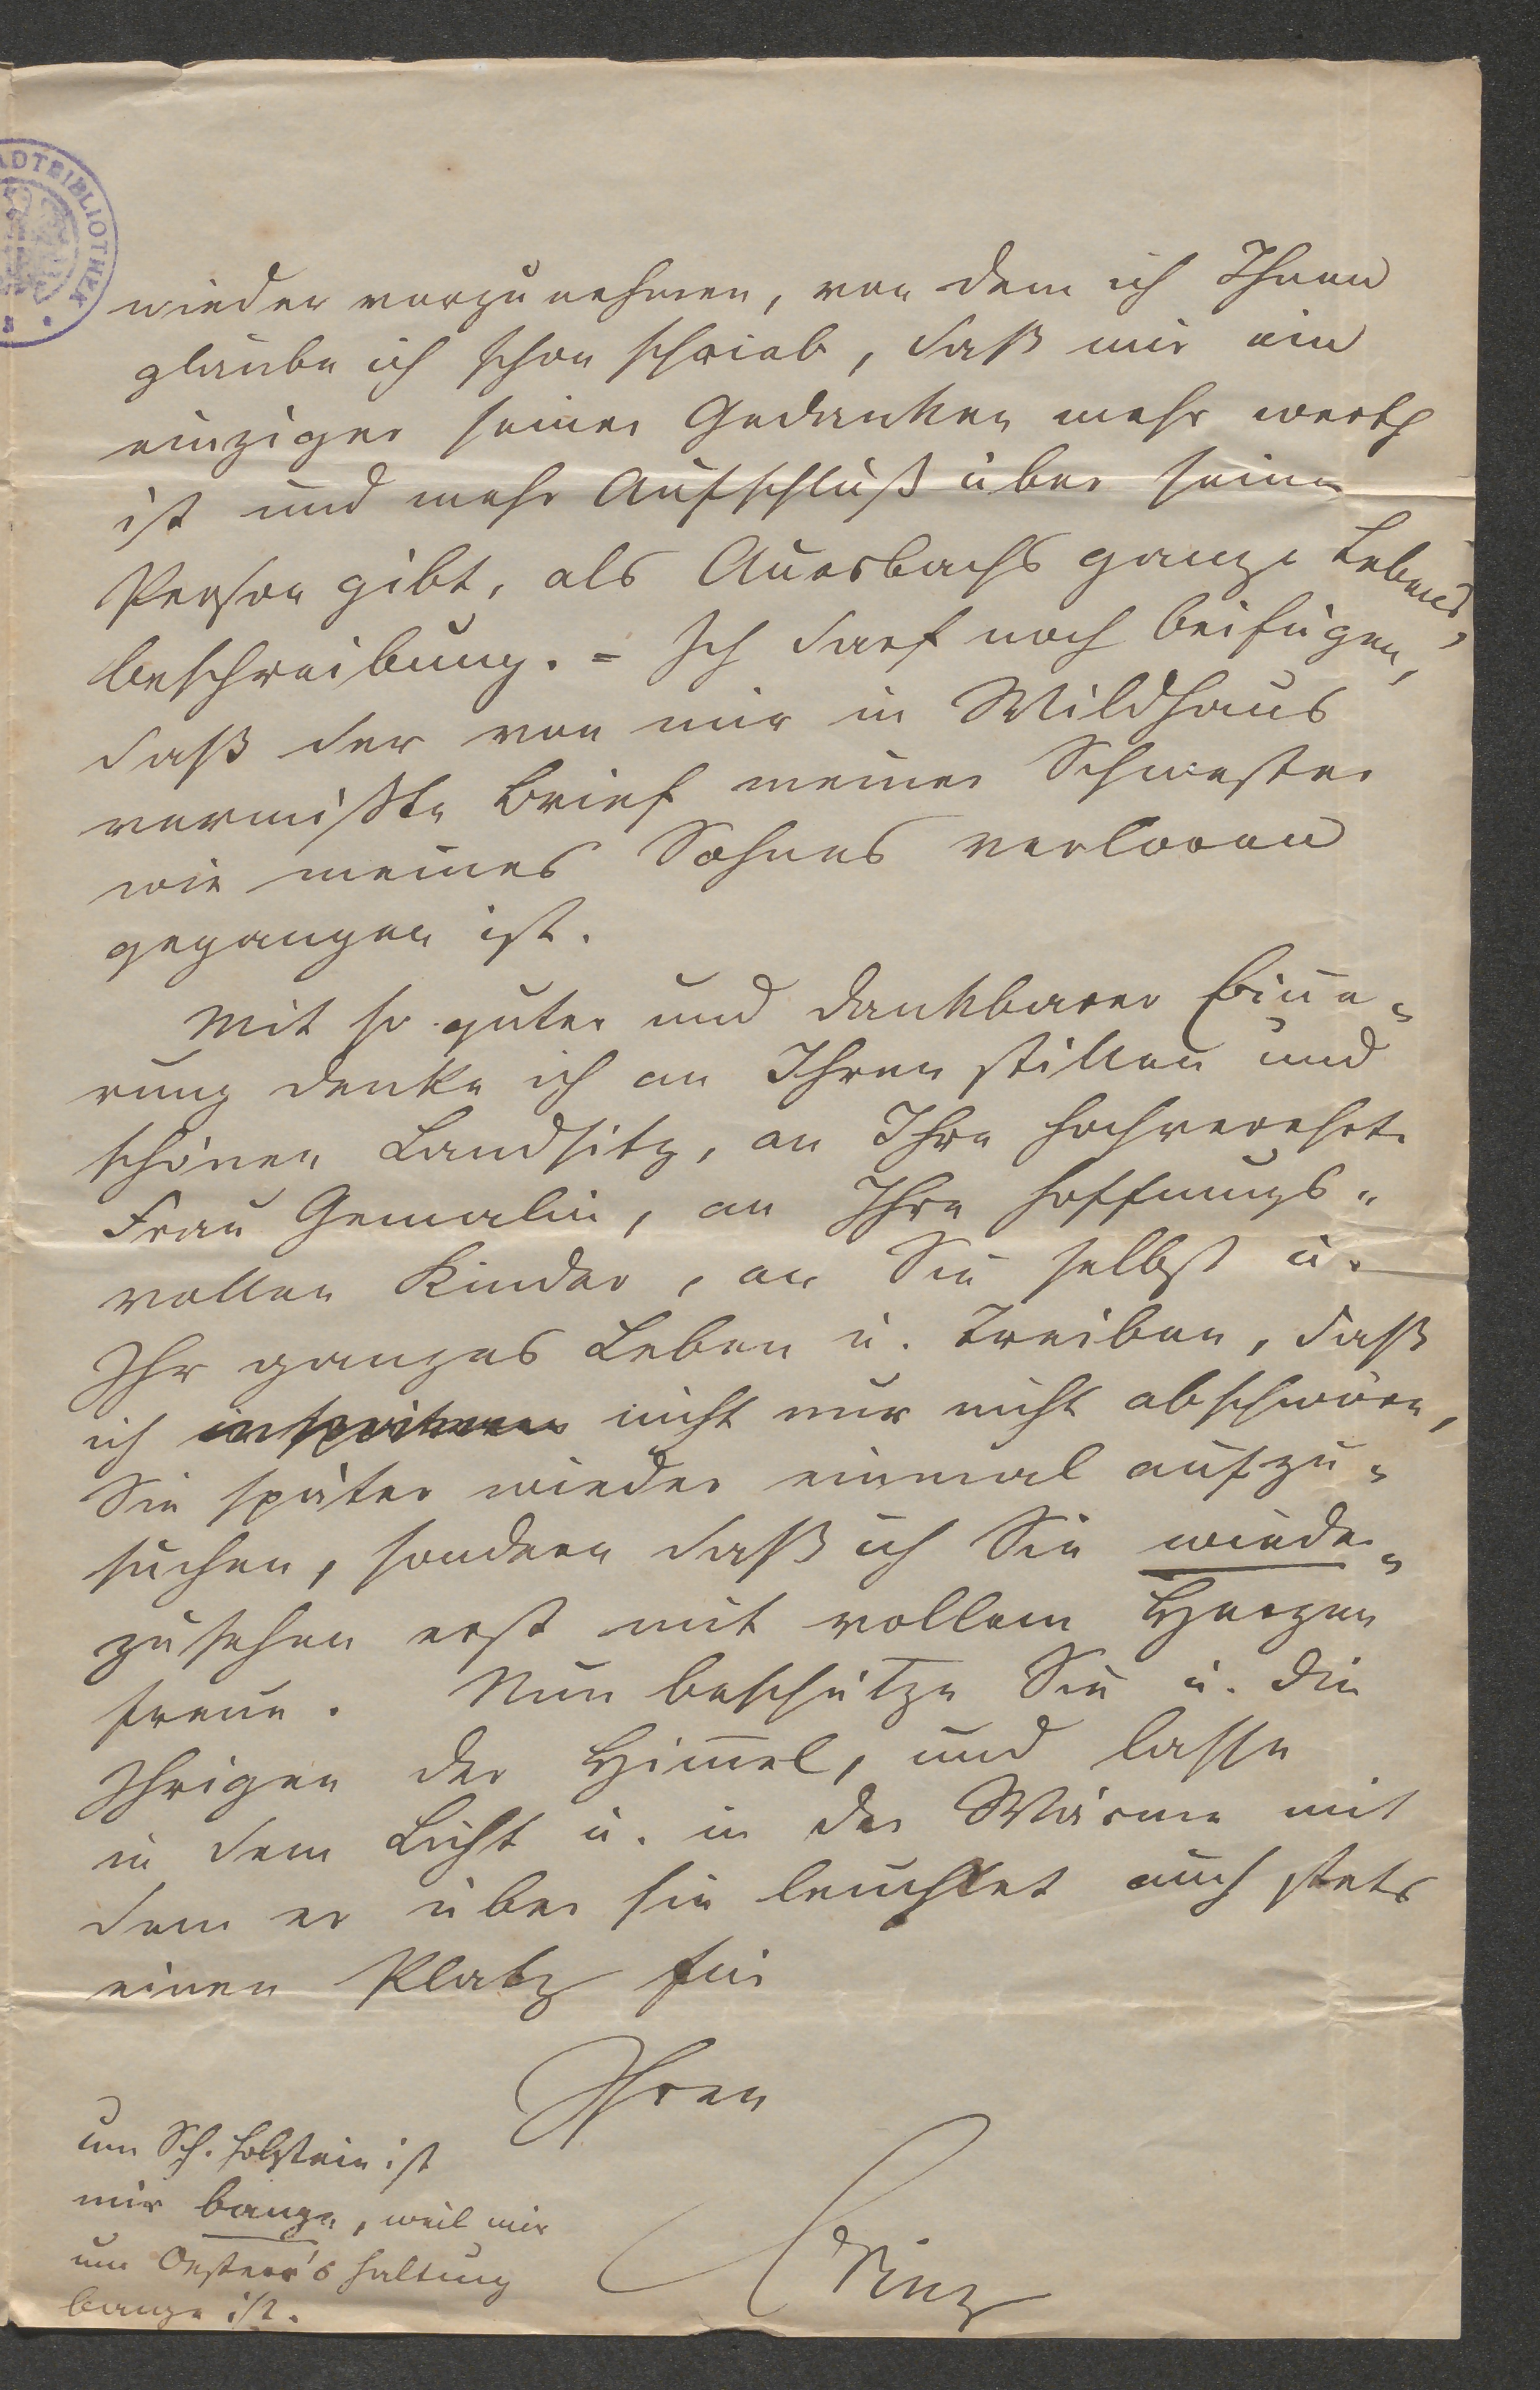 ADTBIBLIOTHEK
wieder vorzunehmen, von dem ich Ihnen
glaube ich schon schrieb, daß mir ein
einziger seiner Gedanken mehr werth
ist und mehr Aufschluß über seine
Person gibt, als Auerbachs ganze Lebens,
beschreibung. = Ich darf noch beifügen,
daß der von mir in Wildhaus
vermißte Brief meiner Schwester
wie meines Sohnes verloren
gegangen ist.
Mit so guter und dankbarer Erinne=
rung denke ich an Ihren stillen und
schönen Landsitz, an Ihre hochverehrte
Frau Gemalin, an Ihre hoffnungs=
vollen Kinder, an Sie selbst u.
Ihr ganzes Leben u. Treiben, daß
ich nicht nur nicht abschwöre,
Sie später wieder einmal aufzu=
suchen, sondern daß ich Sie wieder=
zusehen erst mit vollem Herzen
freue. Nun beschütze Sie u. die
Ihrigen der Him̄el, und lasse
in dem Licht u. in der Wärme mit
dem er über sie leuchtet auch stets
einen Platz für
Ihren
Prinz
um Sch. Holstein ist
mir bange, weil mir
um Oesterr's Haltung
bange ist.